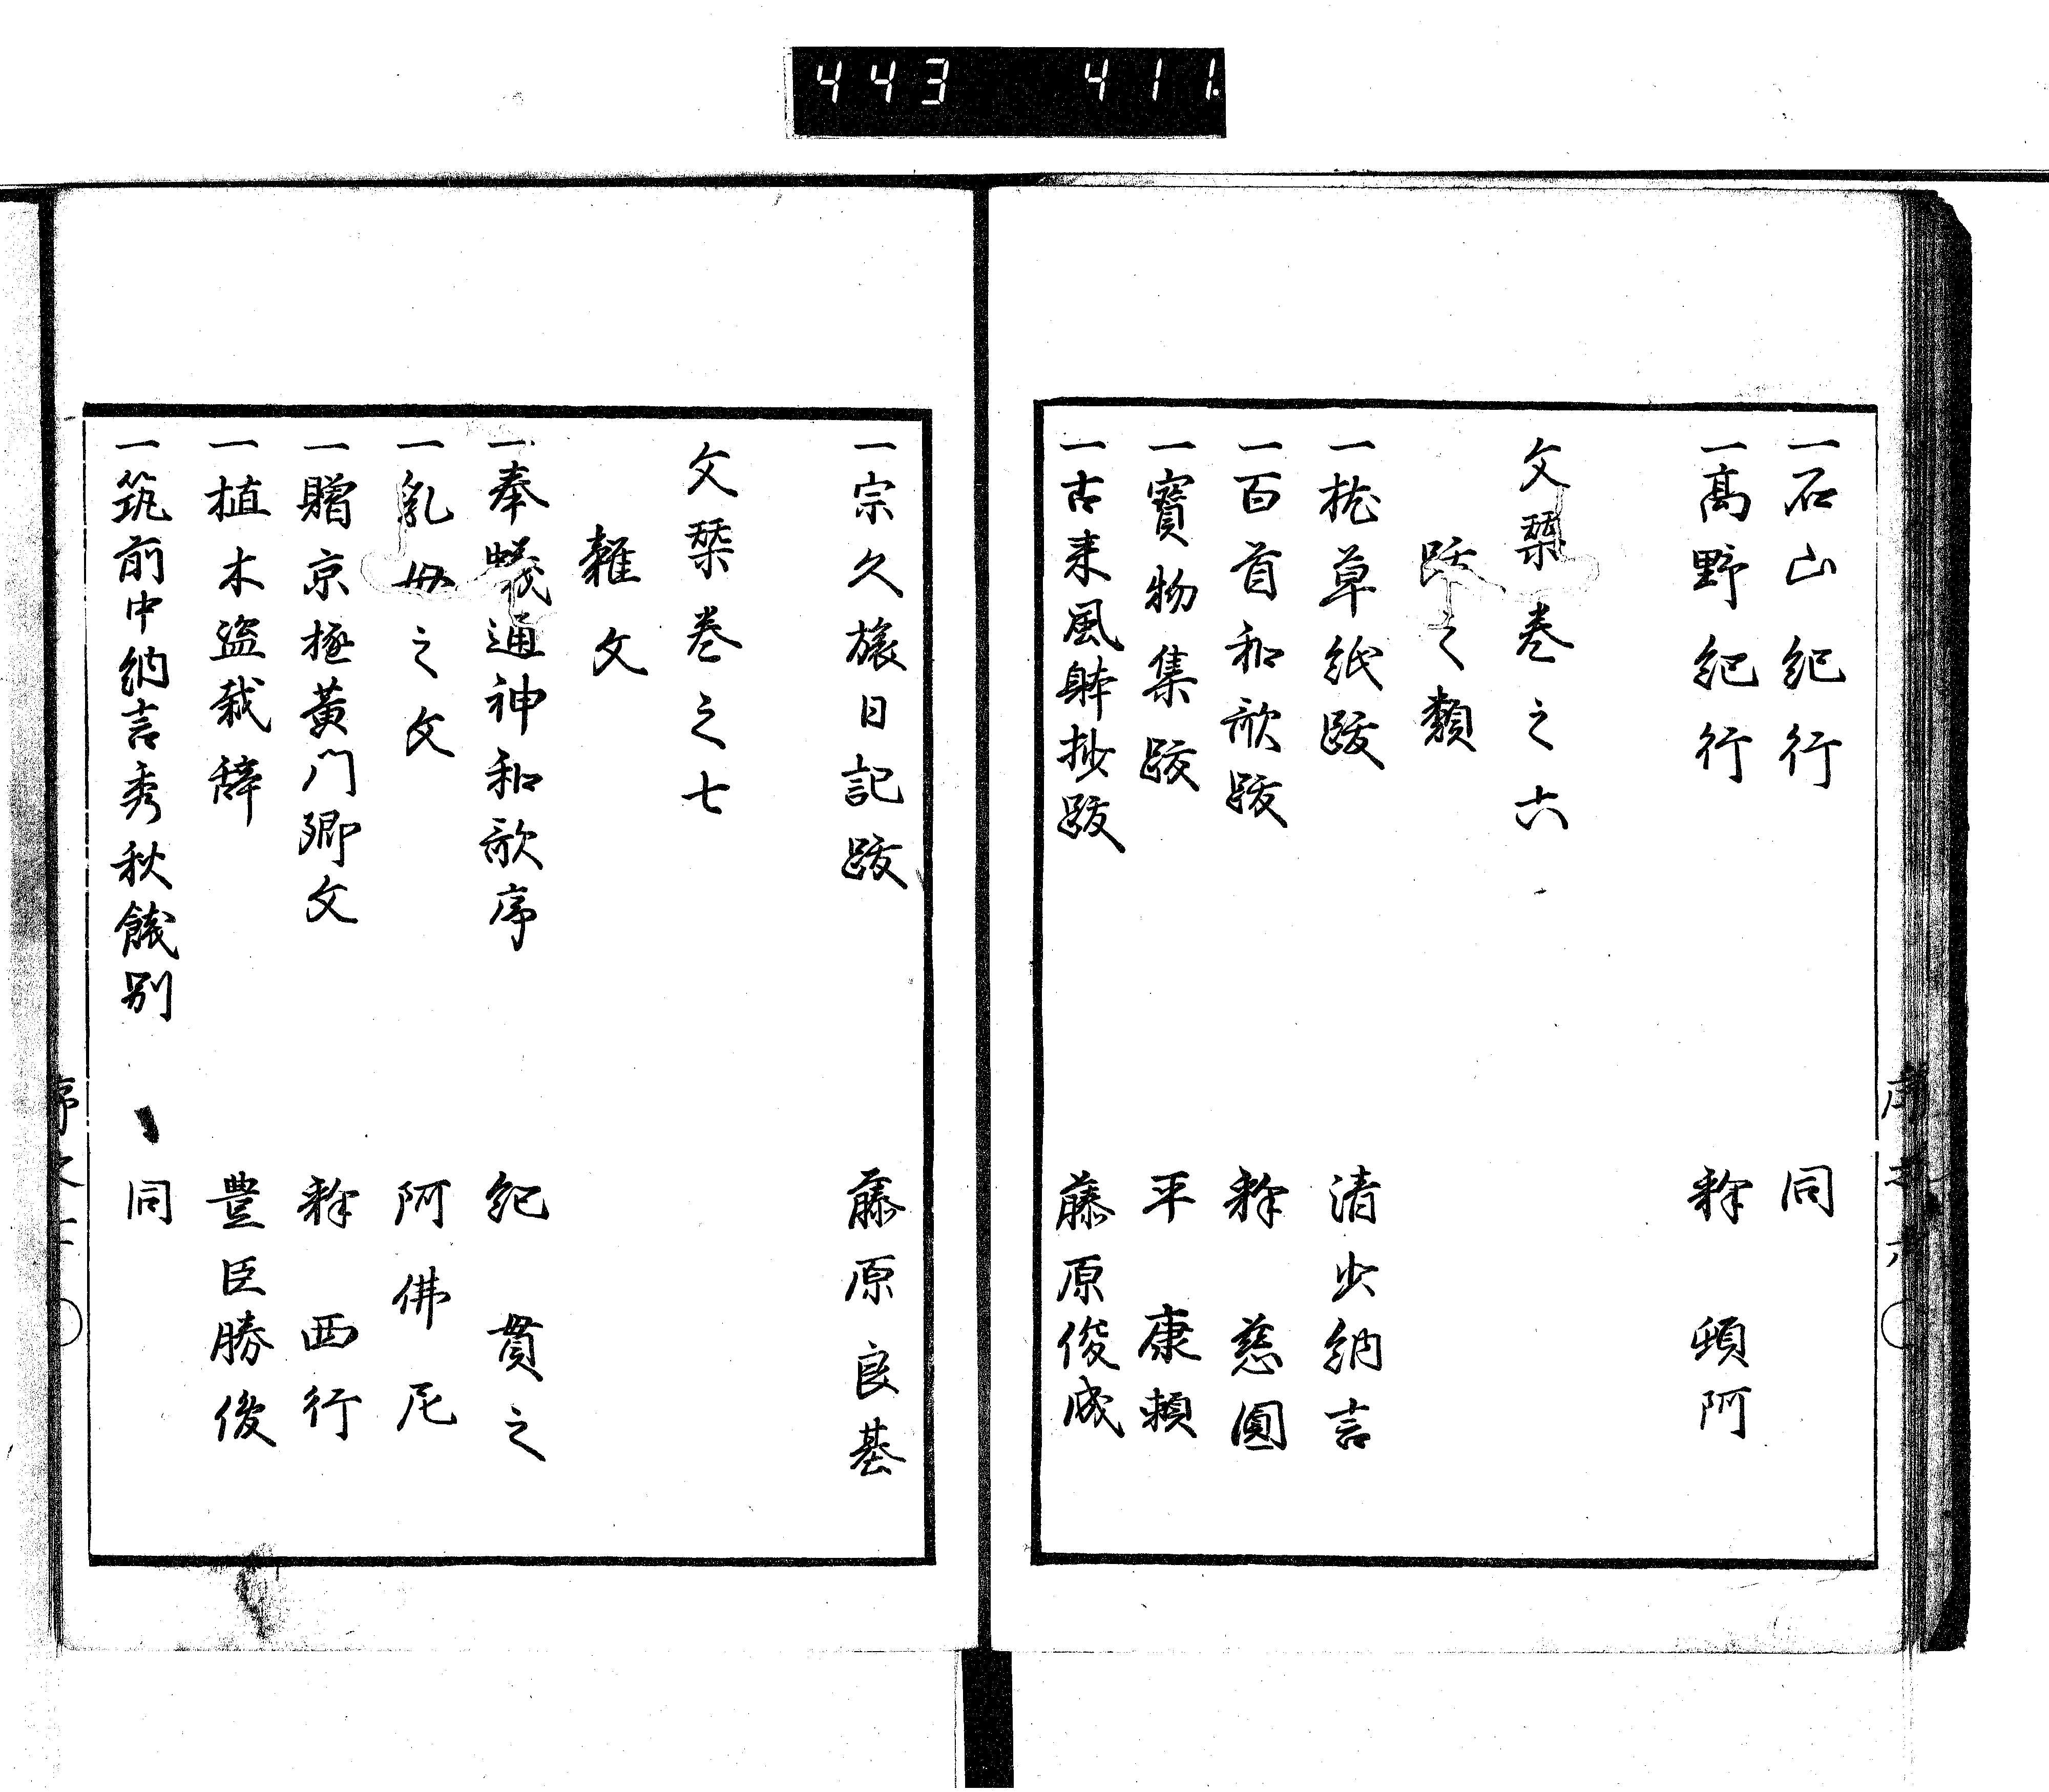 443 411
一石山紀行 同
一高野紀行 釈 頓阿
文栞巻之六
跋之類
一枕草紙跋 清少納言
一百首和歌跋 釈 慈圓
一寶物集跋 平 康頼
一古来風躰抄跋 藤原俊成
一宗久旅日記跋 藤原良基
文栞巻之七
雜文
一奉蟻通神和歌序 紀 貫之
一乳母之文 阿佛尼
一贈京極黄门卿文 釈 西行
一植木盗栽辞 豊臣勝俊
一筑前中納言秀秋餞別 同